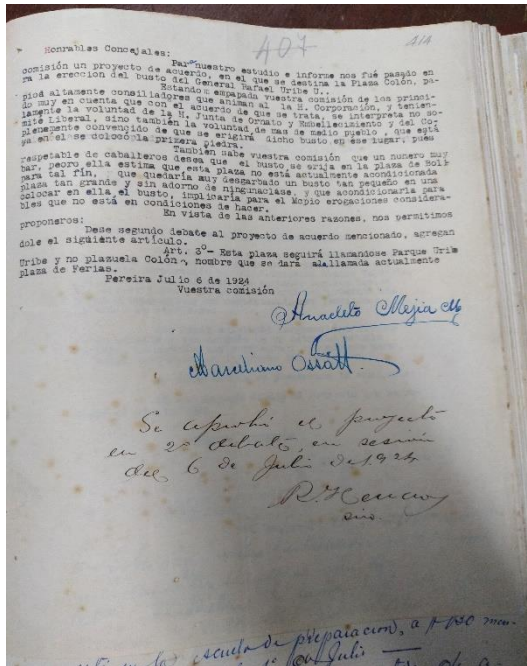 407
414
Honrables Concejales:
Para nuestro estudio e informe nos fué pasado en
comisión un proyecto de acuerdo, en el que se destina la Plaza Colón, pa-
ra la ereccion del busto del General Rafael Uribe U..
Estando empapada vuestra comisión de los princi-
pios altamente consiliadores que animan al la H. Corporación, y tenien-
do muy en cuenta que con el acuerdo de que se trata, se interpreta no so-
lamente la voluntad de la H. Junta de Ornato y Embellecimiento y del Co-
mite Liberal, sino también la voluntad de mas de medio pueblo , que está
plenemente convencido de que se erigirá dicho busto en ese lugar, pues
ya en el se colocó la primera piedra.
Tambien sabe vuestra comisión que un numero muy
respetable de caballeros desea que el busto se erija en la plaza de Bolí
bar, peoro ella estima que esta plaza no está actualmente acodicionada
para tal fin, que quedaría muy desgarbado un busto tan pequeño en una
plaza tan grande y sin adorno de ningunaclase, y que acondicionarla para
colocar en ella el busto, implicaría para el Mcpio erogaciones considera-
bles que no está en condiciones de hacer.
En vista de las anteriores razones, nos permitimos
proponeros:
Dese segundo debate al proyecto de acuerdo mencionado, agregan
dole el siguiente artículo.
Art. 3º- Esta plaza seguirá llamandose Parque Uribe
Uribe y no plazuela Colón , nombre que se dará a la llamada actualmente
plaza de Ferias.
Pereira Julio 6 de 1924
Vuestra comisión
Anacleto Mejia M
Marceliano Ossa
Se aprobó el proyecto
en 2º debate, en sesión
del 6 de Julio de 1924
R. Henao
srio.
escuela de preparacion, a
Julio